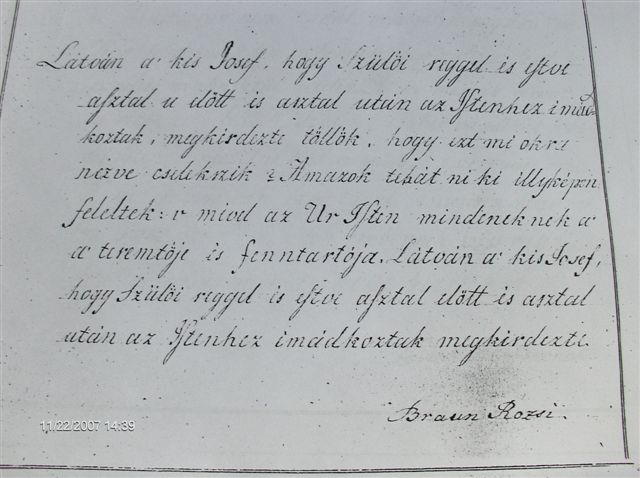 Látván a' kis Josef, hogy Szülöi reggel is eſtve
aſztal u elött is asztal után az Iſtenhez imád-
koztak, megkirdezte töllök, hogy ezt mi okra
nezve cselekszik? Amazok tehát ni ki illyképen
feleltek: mivel az Ur Iſtin mindeneknek a
a teremtöje is fenntartója. Látván a' kis Josef,
hogy Szülöi reggel is eſtve aſztal elött is asztal
után az Iſtenhez imádkoztak megkirdezte.
Braun Rozsi.
11/22/2007 14:39